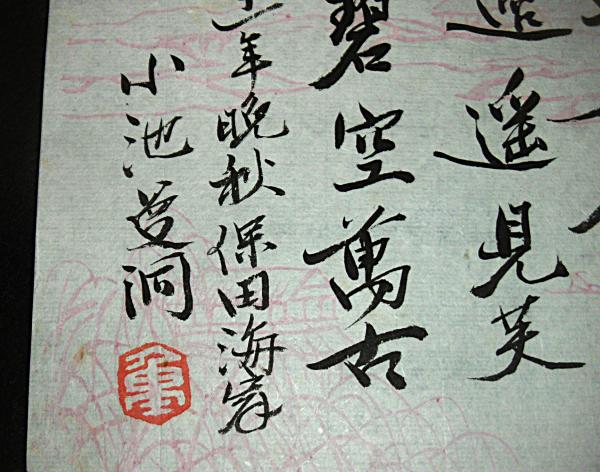 遥見芙
碧空萬古
年晩秋保田海岸
小池曼洞